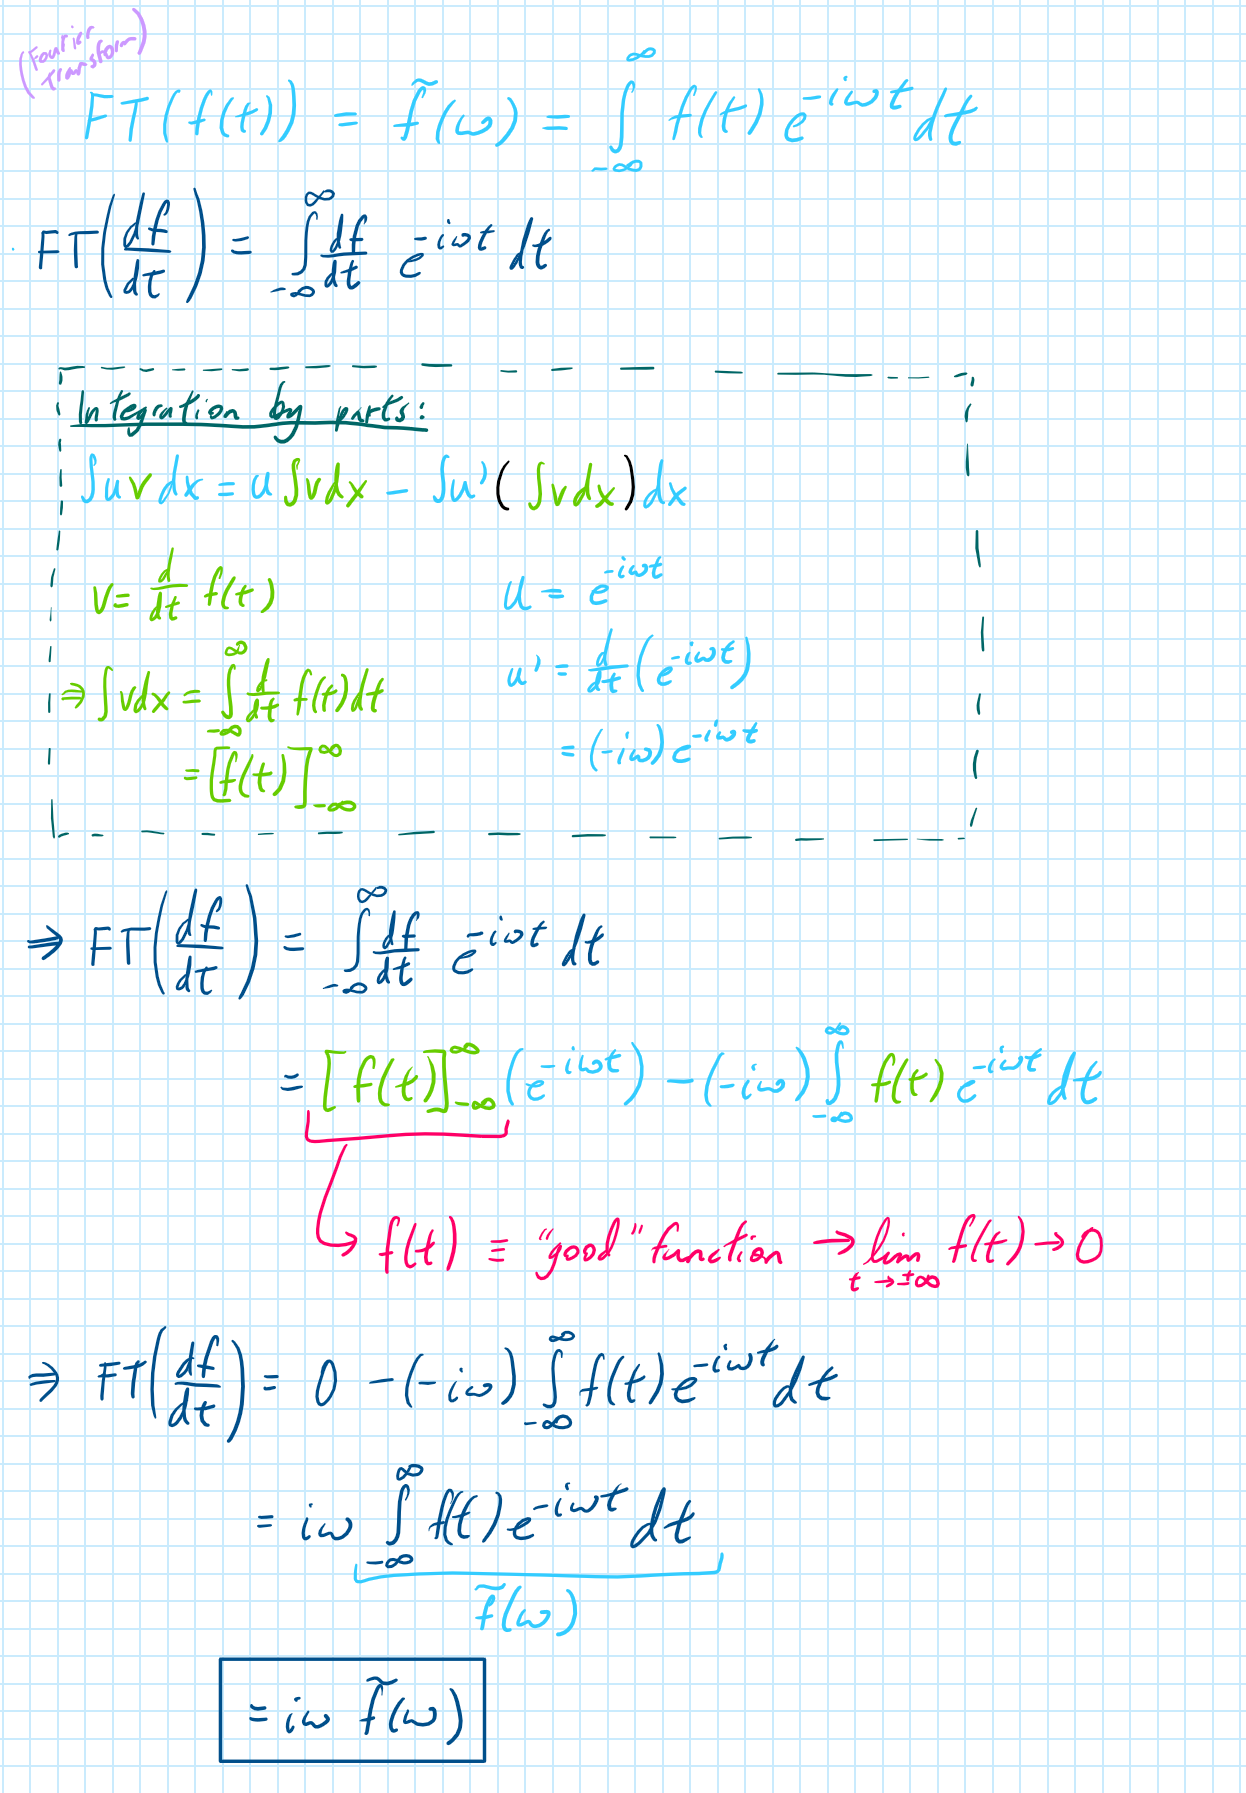 (Fourier
Transform)
FT(f(t)) = f̃(ω) = ∫_{-∞}^{∞} f(t) e^{-iωt} dt
FT(df/dt) = ∫_{-∞}^{∞} df/dt e^{-iωt} dt
Integration by parts:
∫uvdx = u∫vdx - ∫u'(∫vdx)dx
v= d/dt f(t)    u = e^{-iωt}
⇒ ∫vdx = ∫_{-∞}^{∞} d/dt f(t)dt    u' = d/dt (e^{-iωt})
= [f(t)]_{-∞}^{∞}    = (-iω)e^{-iωt}
⇒ FT(df/dt) = ∫_{-∞}^{∞} df/dt e^{-iωt} dt
= [f(t)]_{-∞}^{∞} (e^{-iωt}) - (-iω) ∫_{-∞}^{∞} f(t) e^{-iωt} dt
↳ f(t) ≡ "good" function → lim_{t→±∞} f(t) → 0
⇒ FT(df/dt) = 0 - (-iω) ∫_{-∞}^{∞} f(t) e^{-iωt} dt
= iω ∫_{-∞}^{∞} f(t) e^{-iωt} dt
f̃(ω)
= iω f̃(ω)